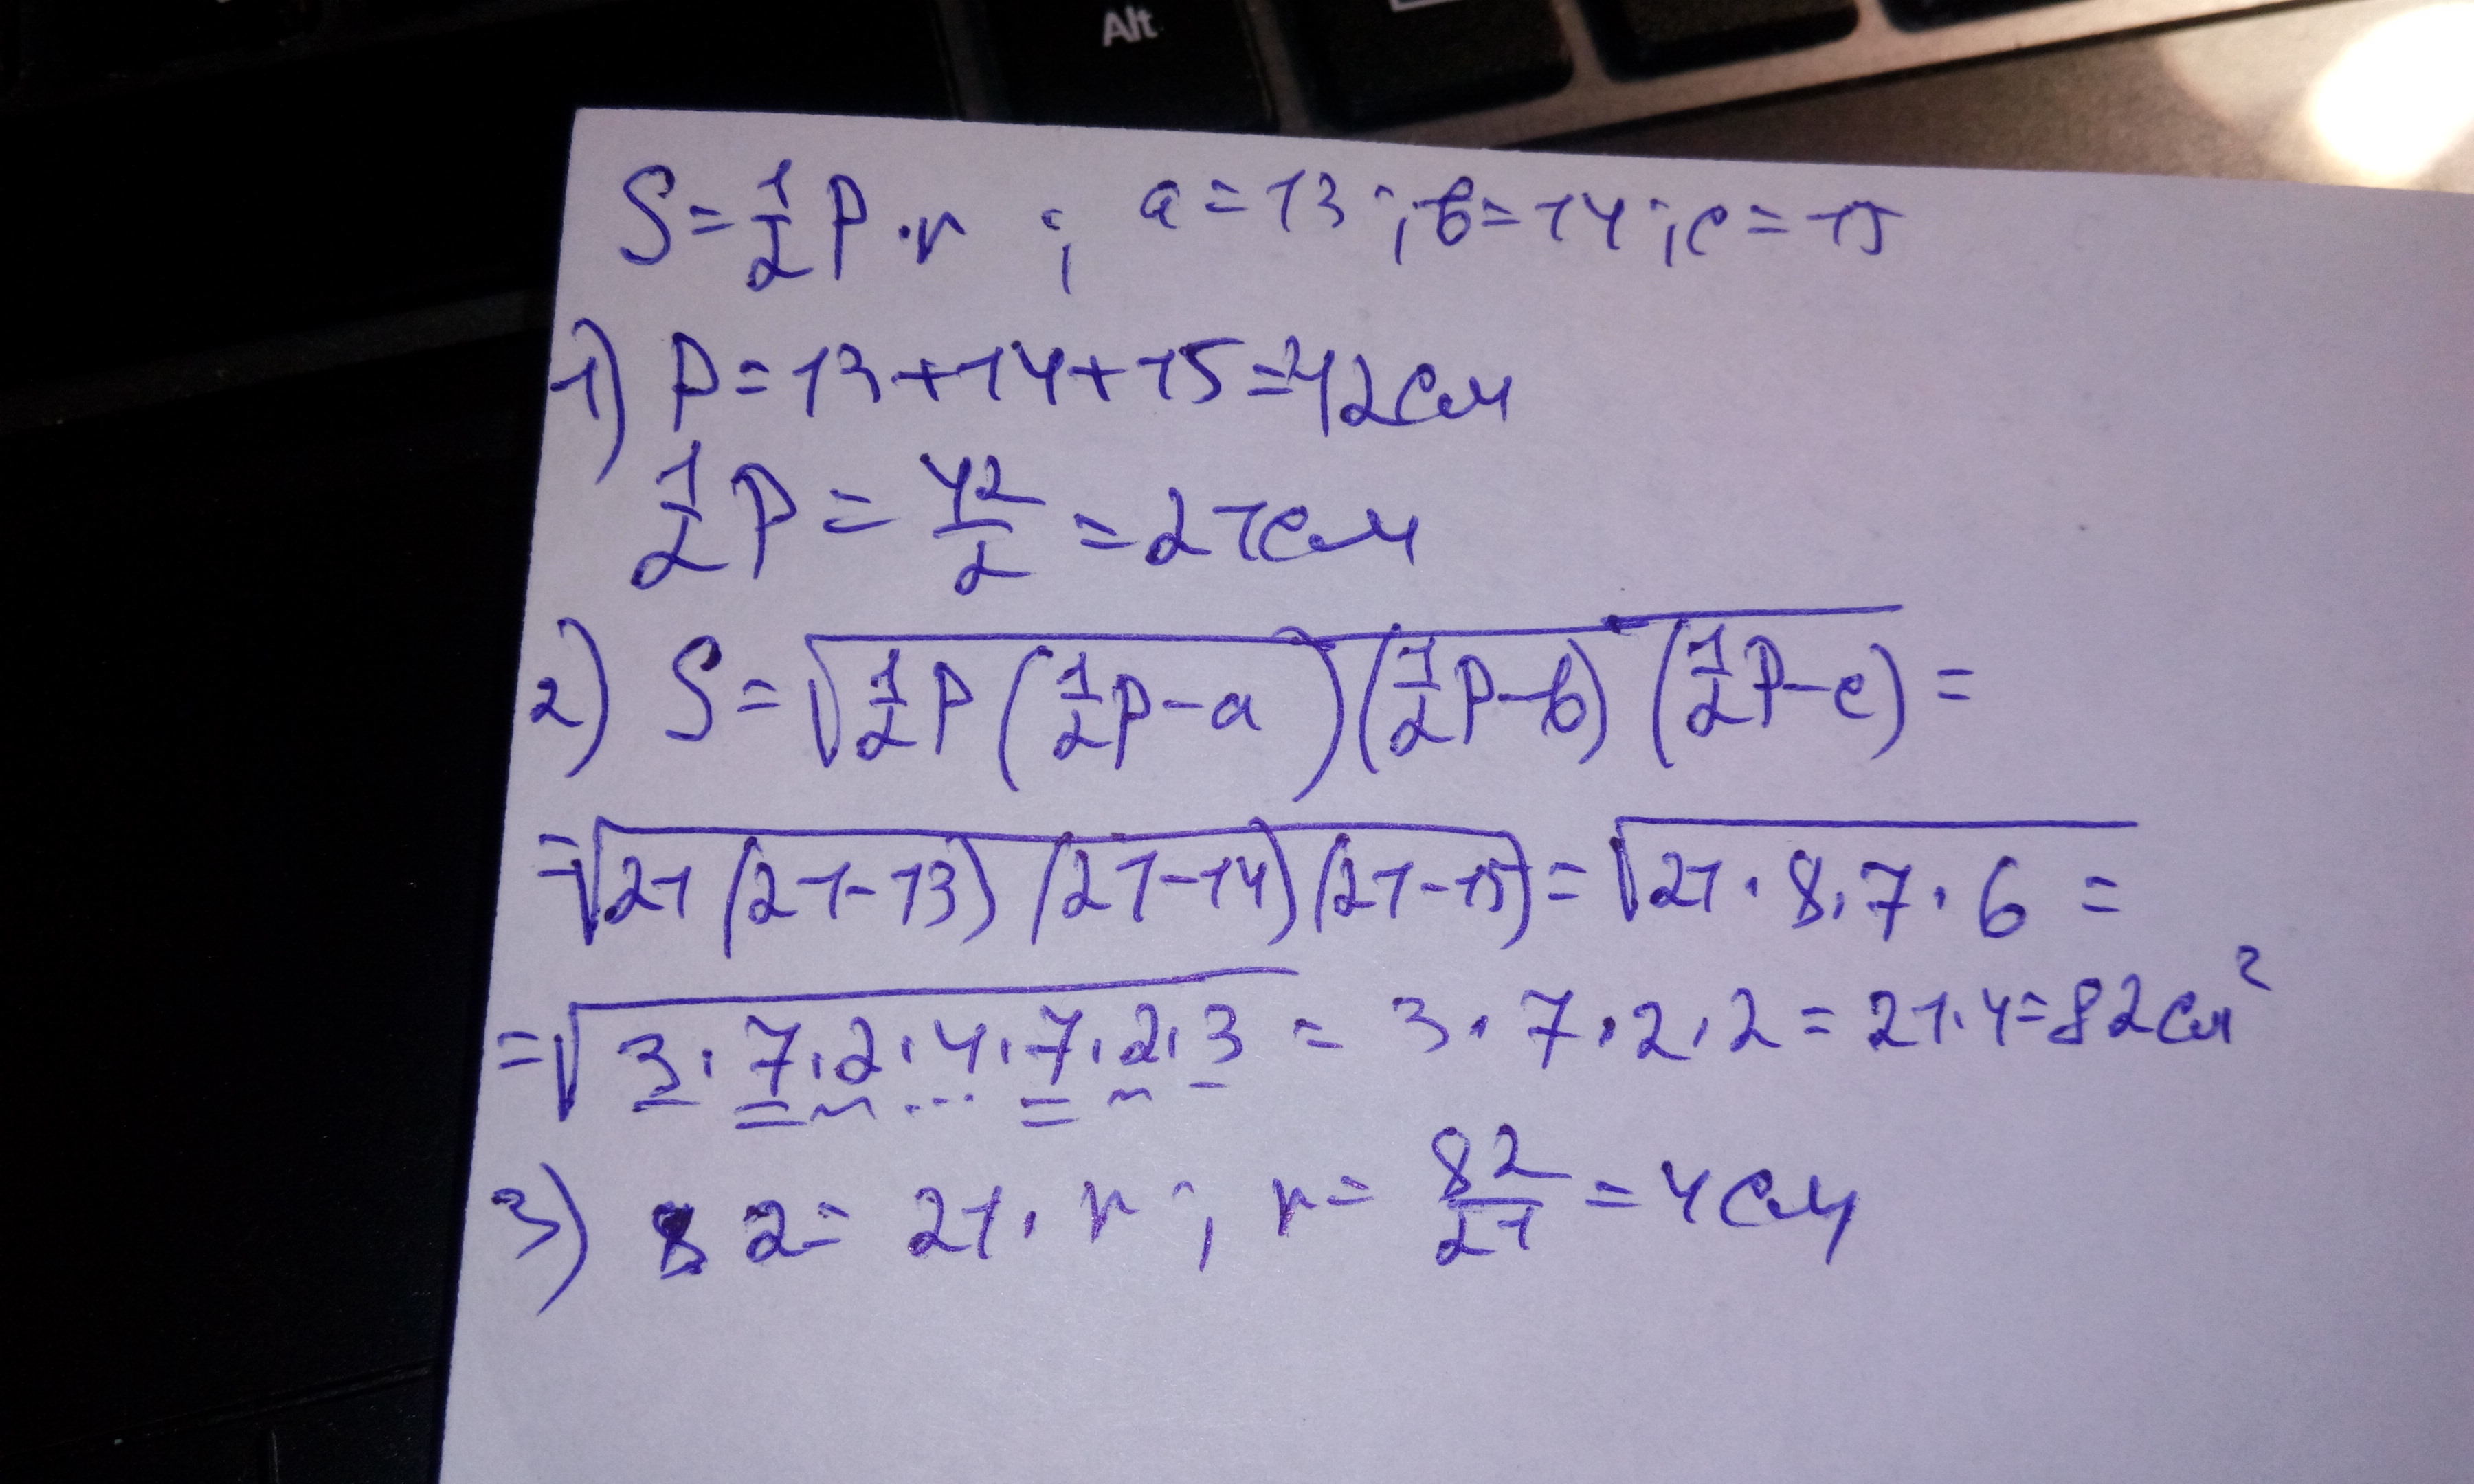 Alt
S = 1/2 P · r ; a = 13 ; b = 14 ; c = 15
1) P = 13 + 14 + 15 = 42 см
1/2 P = 42/2 = 21 см
2) S = √(1/2 P (1/2 P - a) (1/2 P - b) (1/2 P - c)) =
= √(21 (21 - 13) (21 - 14) (21 - 15)) = √(21 · 8 · 7 · 6) =
= √(3 · 7 · 2 · 4 · 7 · 2 · 3) = 3 · 7 · 2 · 2 = 21 · 4 = 82 см²
3) 82 = 21 · r ; r = 82/21 = 4 см